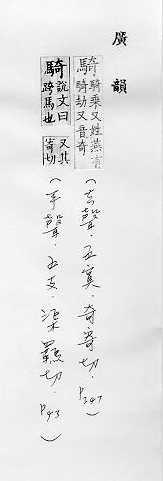 廣韻
騎 騎乘又姓燕有騎劫又音奇
(去聲·五寘·奇寄切·P347)
騎 說文曰跨馬也 又其寄切
(平聲·五支·渠羈切·P43)